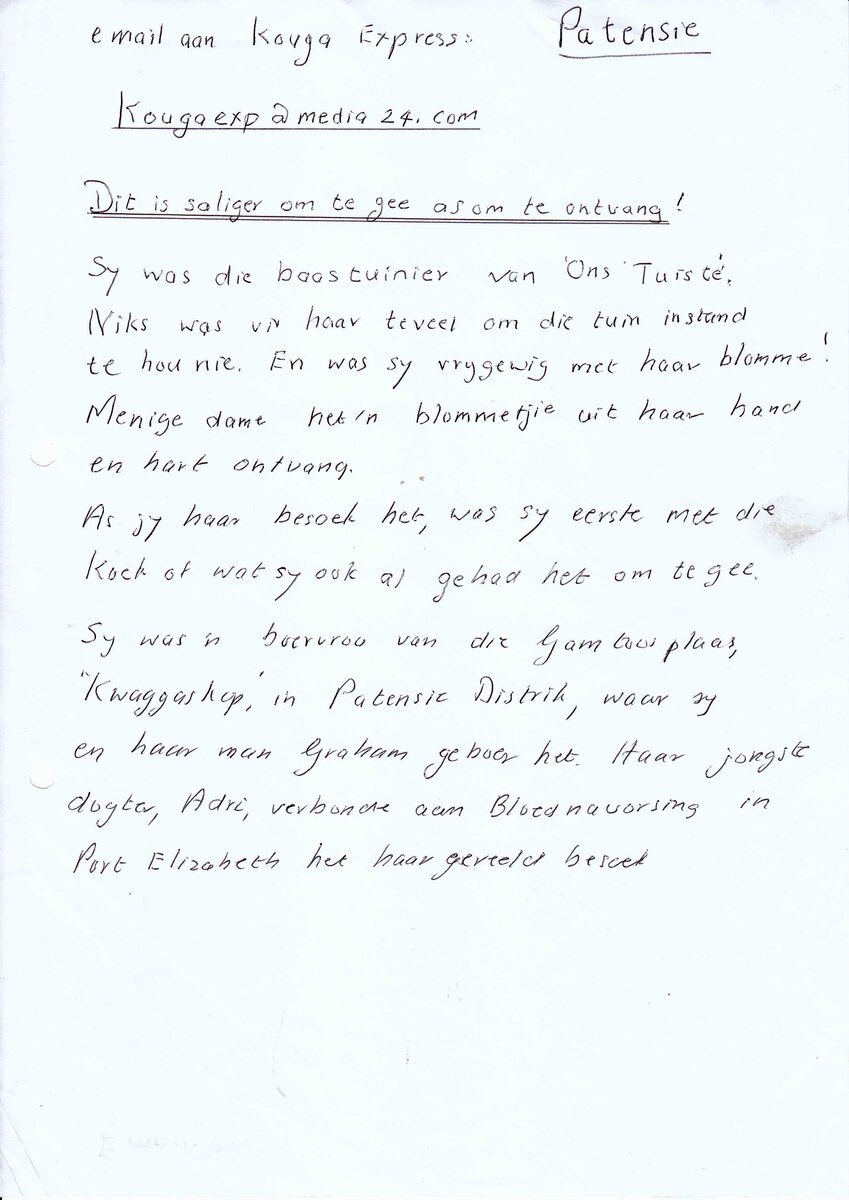 email aan Kouga Express: Patensie
Kougaexp@media24.com
Dit is saliger om te gee as om te ontvang!
Sy was die baastuinier van 'Ons Tuiste'.
Niks was vir haar teveel om die tuin instand
te hou nie. En was sy vrygewig met haar blomme!
Menige dame het 'n blommetjie uit haar hand
en hart ontvang.
As jy haar besoek het, was sy eerste met die
Koek of wat sy ook al gehad het om te gee.
Sy was 'n boervrou van die Gamtoosplaas,
"Kwaggaskop," in Patensie Distrik, waar sy
en haar man Graham geboer het. Haar jongste
dogter, Adri, verbonde aan Bloednavorsing in
Port Elizabeth het haar gereeld besoek